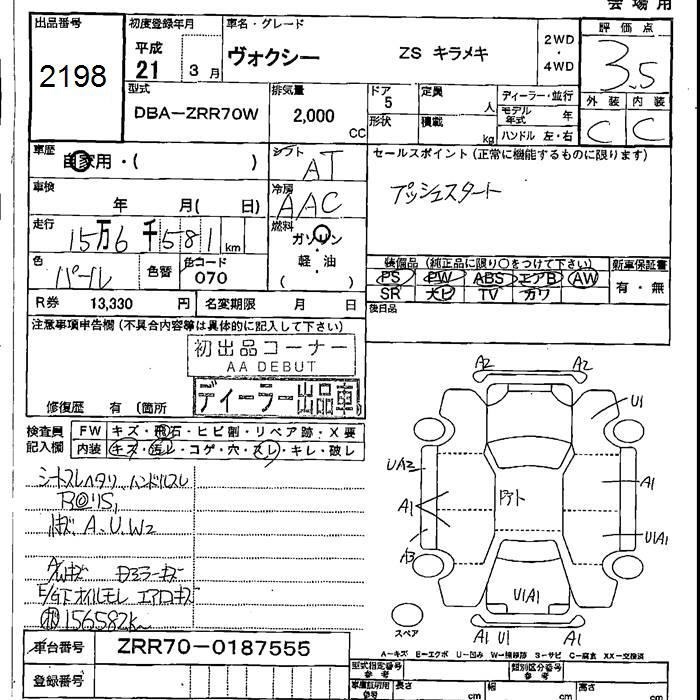 会場用
出品番号 初度登録年月 車名・グレード 評価点
2198 平成 21 3月 ヴォクシー ZS キラメキ 2WD・4WD 3.5
型式 排気量 ドア 定員 ディーラー・並行 外装 内装
DBA-ZRR70W 2,000 CC 5 人 モデル年式 年 C C
形状 積載 kg ハンドル 左・右
車歴 自家用・( ) シフト AT セールスポイント (正常に機能するものに限ります)
車検 年 月( 日) 冷房 AAC プッシュスタート
走行 15万6千581km 燃料 ガソリン
色 パール 色替 色コード 070 軽・油 ( )
装備品 (純正品に限り○をつけて下さい) 新車保証書
PS PW ABS エアB AW 有・無
SR ナビ TV カワ
R券 13,330 円 名変期限 月 日 後日品
注意事項申告欄 (不具合内容等は具体的に記入して下さい)
初出品コーナー
AA DEBUT
ディーラー出品車
修復歴 有 (箇所
検査員記入欄 FW キズ・飛石・ヒビ割・リペア跡・X要
内装 キズ・汚レ・コゲ・穴・スレ・キレ・破レ
シートスレヘタリ ハンドルスレ
A、U、W2
A/Wキズ ドアミラーキズ
E/G下オイルモレ エアロキズ
156582K
A2 A2
U1
UA2 A1
A1
A3 U1A1
U1A1
スペア A1 U1 A1
A-キズ E-エクボ U-凹み W-補修跡 S-サビ C-腐食 XX-交換済
車台番号 ZRR70-0187555
登録番号
型式指定番号 参考 類別区分番号 参考
車庫証明用 参考 長さ cm 幅 cm 高さ cm